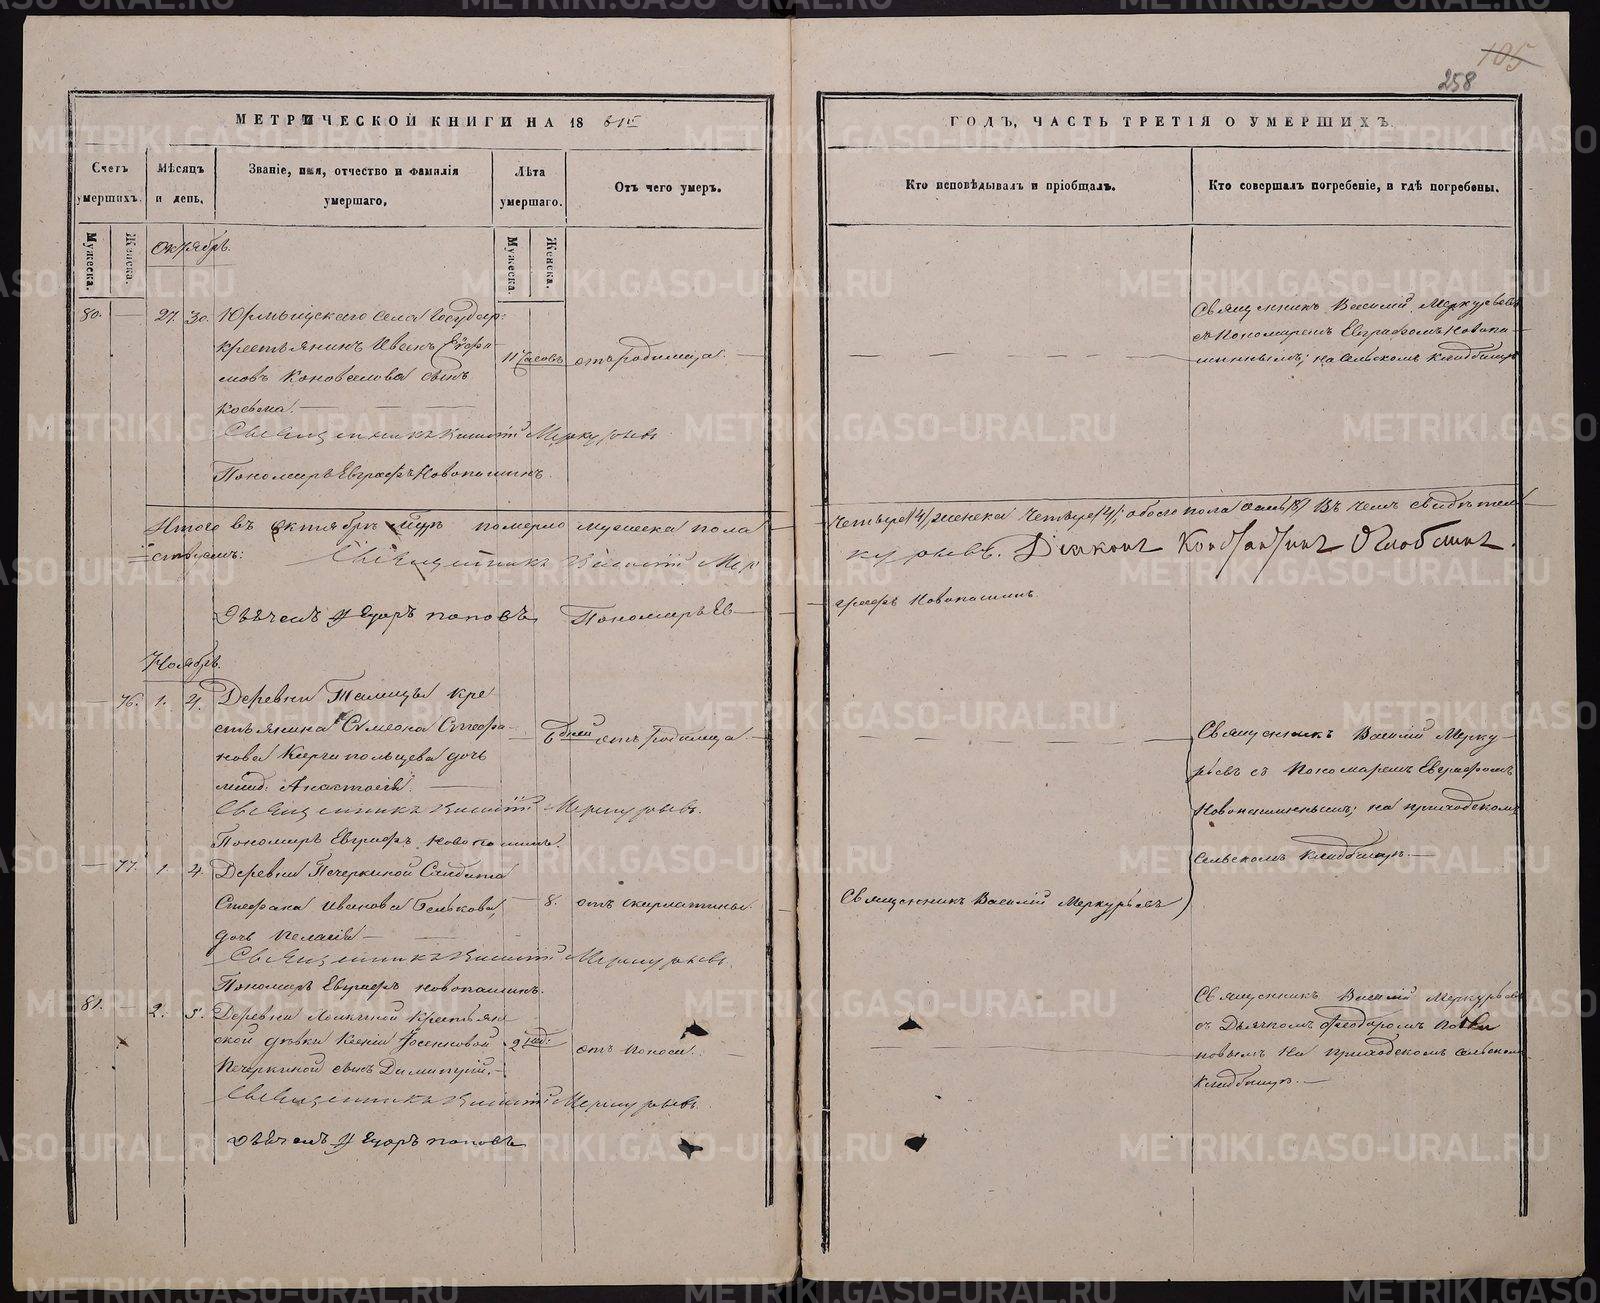 105
258
МЕТРИЧЕСКОЙ КНИГИ НА 18 61й
Счетъ умершихъ.
Мѣсяцъ и день.
Званіе, имя, отчество и фамилія умершаго.
Лѣта умершаго.
Отъ чего умеръ.
Мужеска.
Женска.
Мужеска.
Женска.
Октябрь.
80. — 27. 30.
Юрмытскаго села Государ:
крестьянина Ивана
Коновалова сынъ
Косьма.
11 часовъ
отъ родимца.
Священникъ Василій Меркурьевъ
Пономарь Евграфъ Новопашинъ.
Итого въ Октябрѣ померло мужеска пола
Священникъ Василій Мер
Дьячекъ Ѳ Егоръ Поповъ Пономарь Ев
Ноябрь.
— 76. 1. 4.
Деревни Талицы кре
стьянина Симеона Стефа
нова Каргапольцева дочь
млад: Анастасія.
6 дней
отъ родимца.
Священникъ Василій Меркурьевъ.
Пономарь Евграфъ Новопашинъ.
— 77. 1. 4.
Деревни Печеркиной Солдата
Стефана Иванова Белькова,
дочь Пелагія
8.
отъ скарлатины.
Священникъ Василій Меркурьевъ.
Пономарь Евграфъ Новопашинъ.
81. — 2. 5.
Деревни крестьян
ской дѣвки Ксеніи
Печеркиной сынъ Димитрій.
2 нед:
отъ поноса.
Священникъ Василій Меркурьевъ.
Дьячекъ Ѳ Егоръ Поповъ
ГОДЪ, ЧАСТЬ ТРЕТІЯ О УМЕРШИХЪ.
Кто исповѣдывалъ и пріобщалъ.
Кто совершалъ погребеніе, и гдѣ погребены.
Священникъ Василій Меркурьевъ
съ Пономаремъ Евграфомъ Новопа
шинымъ; на сельскомъ кладбищѣ
четыре /4/ женска четыре /4/, обоего пола осмь /8/ Въ чемъ свидѣтель
курьевъ. Діаконъ Константинъ
графъ Новопашинъ.
Священникъ Василій Мерку
рьевъ съ Пономаремъ Евграфомъ
Новопашинымъ; на приходскомъ
сельскомъ кладбищѣ.
Священникъ Василій Меркурьевъ
Священникъ Василій Меркурьевъ
съ Дьячкомъ Феодоромъ По
повымъ на приходскомъ сельскомъ
кладбищѣ.
METRIKI.GASO-URAL.RU